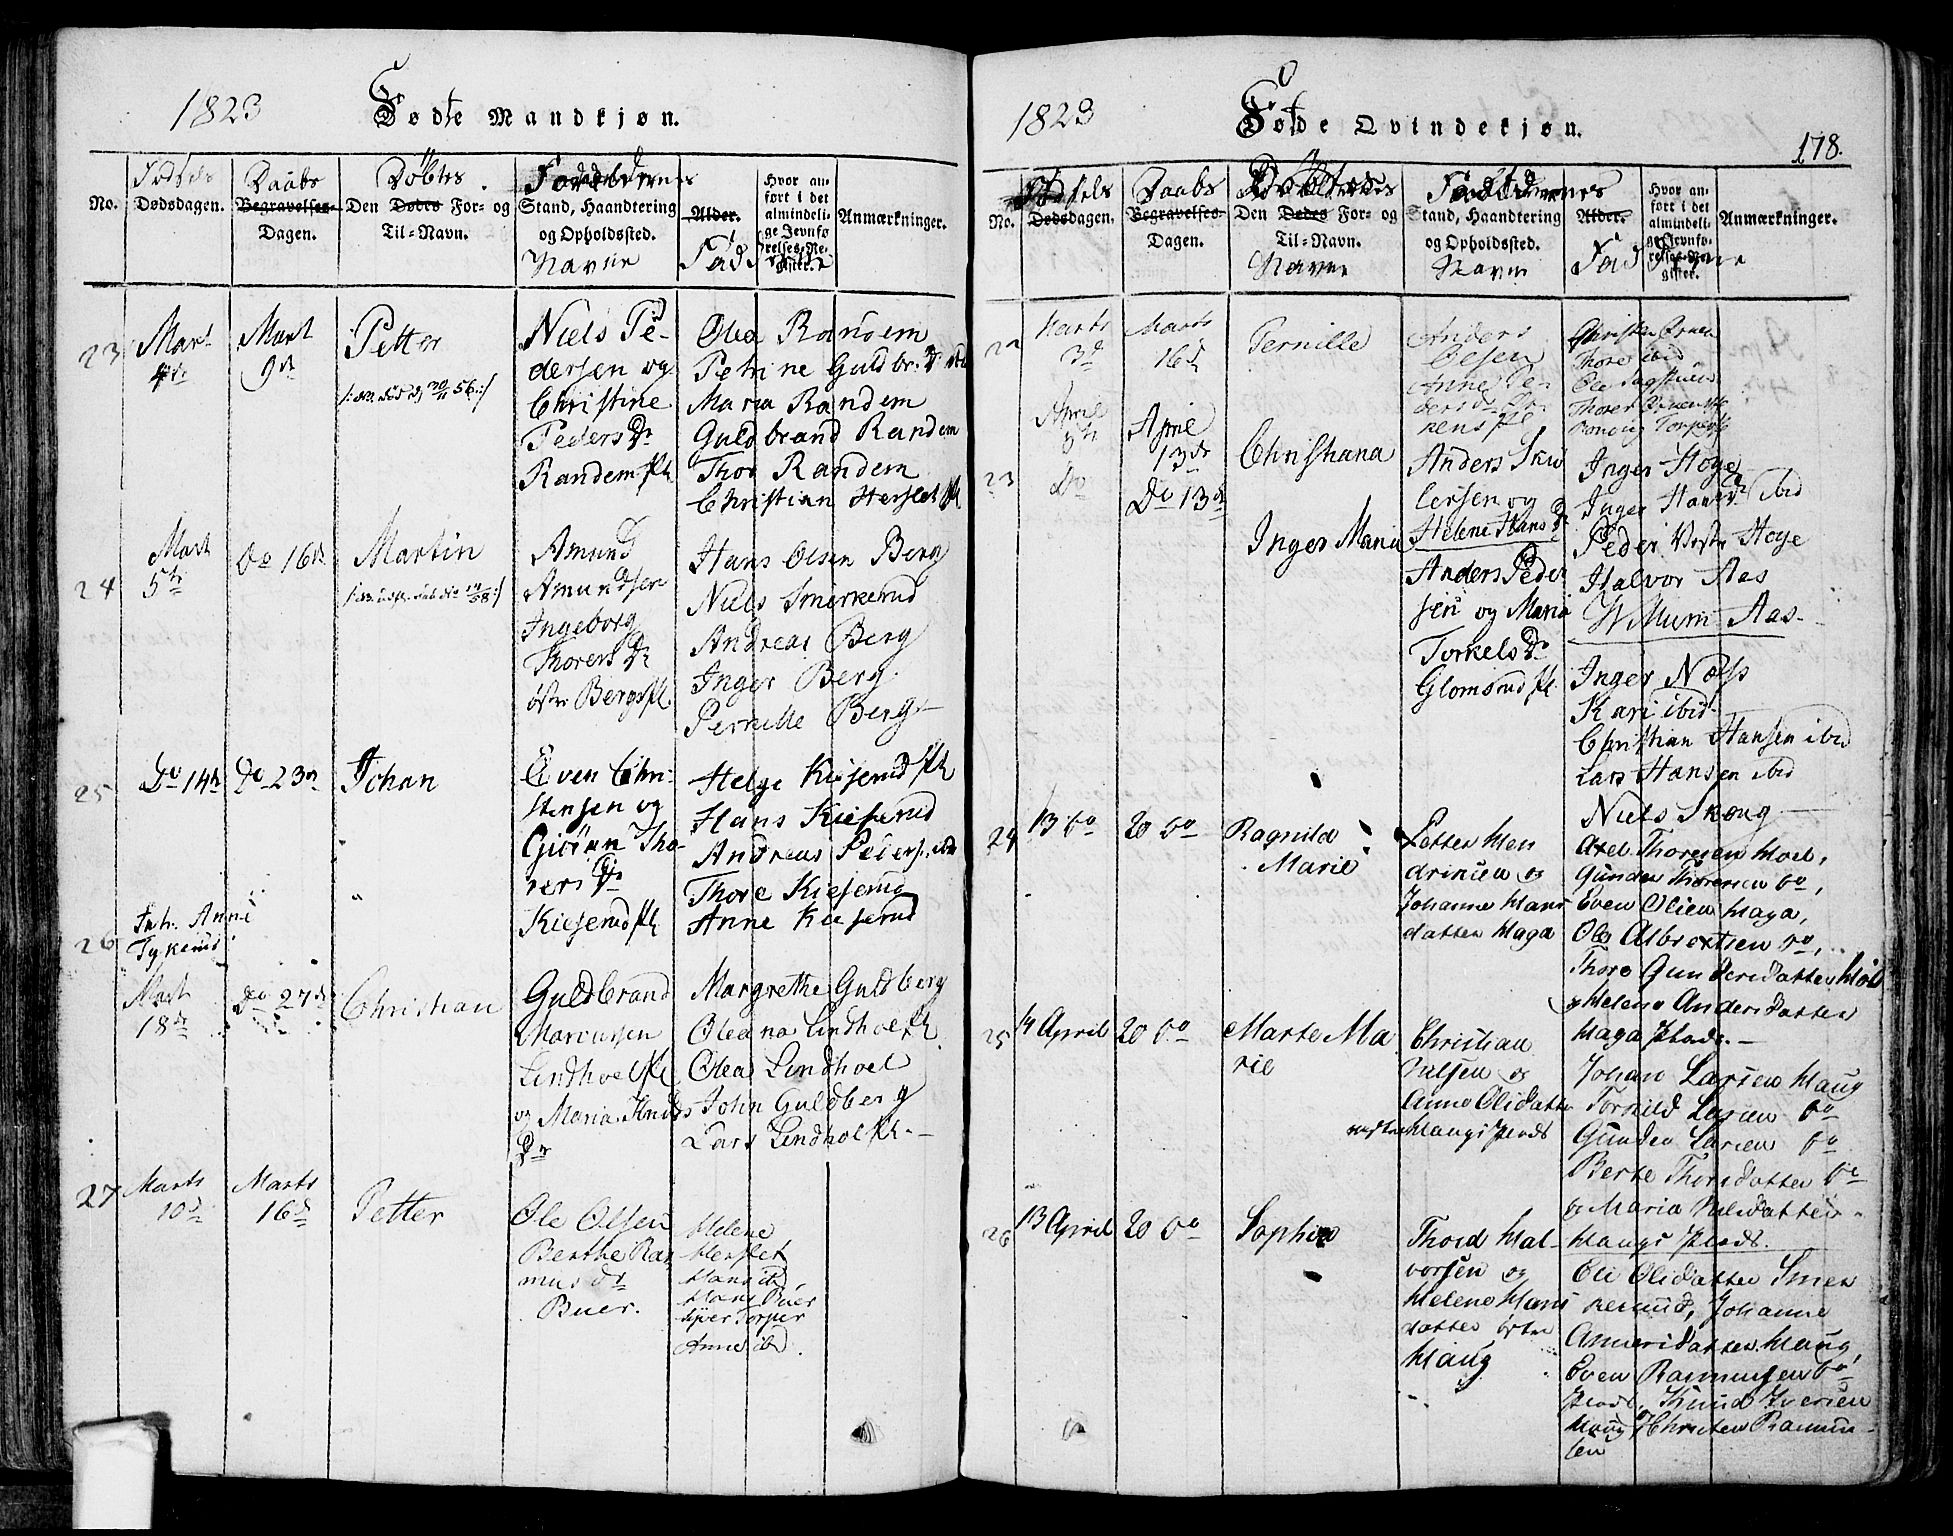 1823 Fødte Mandkjøn.
No.
Fødsels
Dødsdagen.
Daabs
Begravelses-
Dagen.
Døbtes
Den Dødes For- og
Til-Navn.
Forældrenes
Stand, Haandtering
og Opholdssted.
Navne
Alder.
Faddere
Hvor an-
ført i det
almindeli-
ge Jevnfø-
relses-Re-
gister.
Anmærkninger.
23
Mart
4de
Mart
9de
Petter
Niels Pe-
dersen og
Christine
Peders Dr
Randem Pl
Olea Randem
Petrine Guldbr: Dr
Maria Randem
Guldbrand Randem
Thor Randem
Christian Herslet Pl
24
Mart
5te
Do 16de
Martin
Amund
Amundsen
Ingeborg
Thorers Dr
østr Bergs Pl.
Hans Olsen Berg
Niels Smerkerud
Andreas Berg
Inger Berg
Pernille Berg
25
Do 14de
Do 23de
Johan
Even Chri-
stensen og
Giøran Tho-
rers Dr
Kieserud Pl
Helge Kieserud Pl
Hans Kieserud
Andreas Peders. ibd
Thore Kieserud
Anne Kieserud
26
Mart
18de
Do 27de
Christian
Guldbrand
Marcussen
Lindhoel Pl
og Maria Knuds
Dr
Margrethe Guldberg
Oleana Lindhoel Pl
Olea Lindhoel
John Guldberg
Lars Lindhol Pl.
27
Marts
10de
Marts
16de
Petter
Ole Olsen
Berthe Ras
mus dr
Buer.
Helene
Herslet
Hans ibd
Hans Buer
Iver Torper
Anne ibd.
1823 Fødde Qvindekjøn.
178.
No.
Fødsels
Dødsdagen.
Daabs
Begravelses-
Dagen.
Den Dødes For- og
Til-Navn.
Navne
Forældrenes
Stand, Haandtering
og Opholdssted.
Navn
Alder.
Faddere
Hvor an-
ført i det
almindeli-
ge Jevnfø-
relses-Re-
gister.
Anmærkninger.
22
Marts
3de
Marts
16de
Pernille
Anders
Olsen
Anne Pe-
ders dr
Thore ibid
23
April
8de
April
13de
Christiana
Anders
lersen og
Helene Hans Dr
Inger Høye
Inger Hans Dr ibid
Peder Vestr Høye
Halvor Aas
Aas
Do
Do 13de
Inger Maria
Anders Peder
sen og Maria
Torkels Dr
Glomsrud Pl.
Inger Næss
Kari ibid
Christian Hansen ibid
Lars Hansen ibid
Niels Skoug
24
13 Do
20 Do
Ragnild
Marie
Petter Hen
drinsen og
Johanne Hans
datter Haga
Axel Thoresen Moel,
Gunder Thoresen Do,
Even Olsen Haga,
Ole Albrextsen Do,
Thore Gundersdatter Moel
og Helene Andersdatter
Haga Plads.
25
14 April
20 Do
Marte Ma
rie
Christian
Julsen og
Anne Olsdatter
vestre Haugs Plads
Johan Larsen Haug
Torkild Larsen Do
Gunder Larsen Do
Berte Thorsdatter Do
og Maria Julsdatter
Haugs Plads.
26
13 April
20 Do
Sophie
Thord Hal-
vorsen og
Helene Hans
datter østre
Haug
Eli Olsdatter Smer
kerud, Johanne
Amnersdatter Haug,
Even Rasmussen Do
Plads, Knud Iversen
Haug, Christen Rasmus
sen